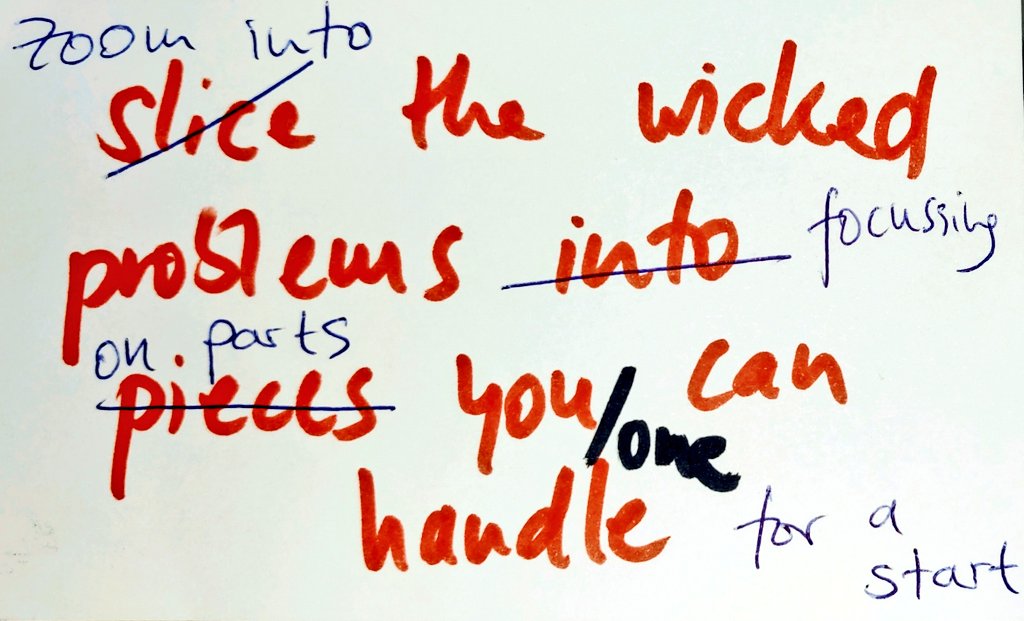 zoom into
slice the wicked
problems into focussing
on parts
pieces you/one can
handle for a
start